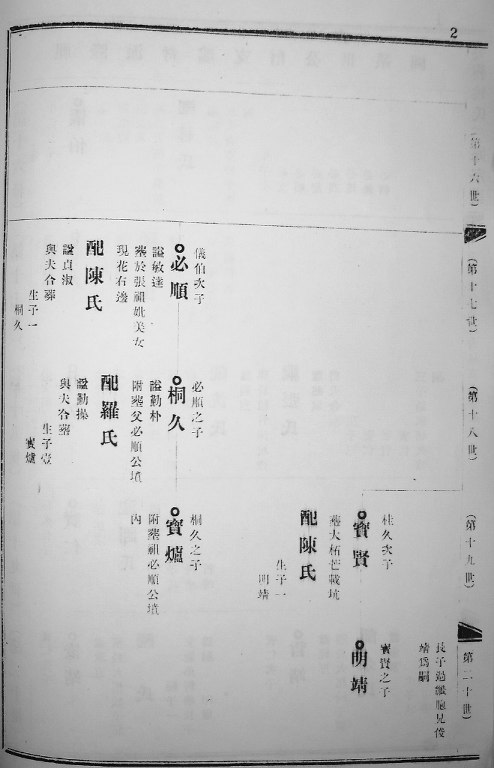 2
(第十六世)
(第十七世)
(第十八世)
(第十九世)
(第二十世)
長子過繼胞兄俊
靖爲嗣
桂久次子
寶賢
葬大柘芒載坑
配陳氏
生子一
明靖
寶賢之子
明靖
儀伯次子
必順
諡敏達
葬於張祖妣美女
現花右邊
配陳氏
諡貞淑
與夫合葬
生子一
桐久
必順之子
桐久
諡勤朴
附葬父必順公墳
配羅氏
諡勤操
與夫合葬
生子壹
寶爐
桐久之子
寶爐
附葬祖必順公墳
內